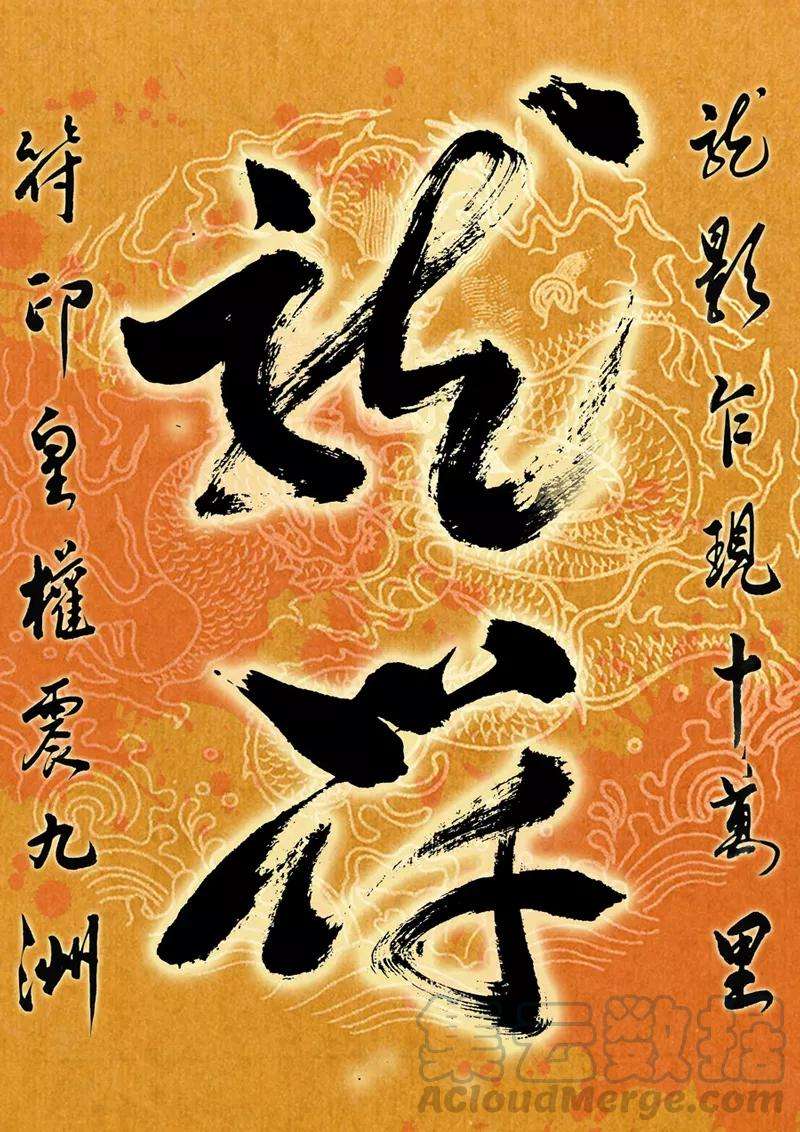 龍影乍現十萬里
龍符
符印皇權震九洲
集云数据
AcloudMerge.com